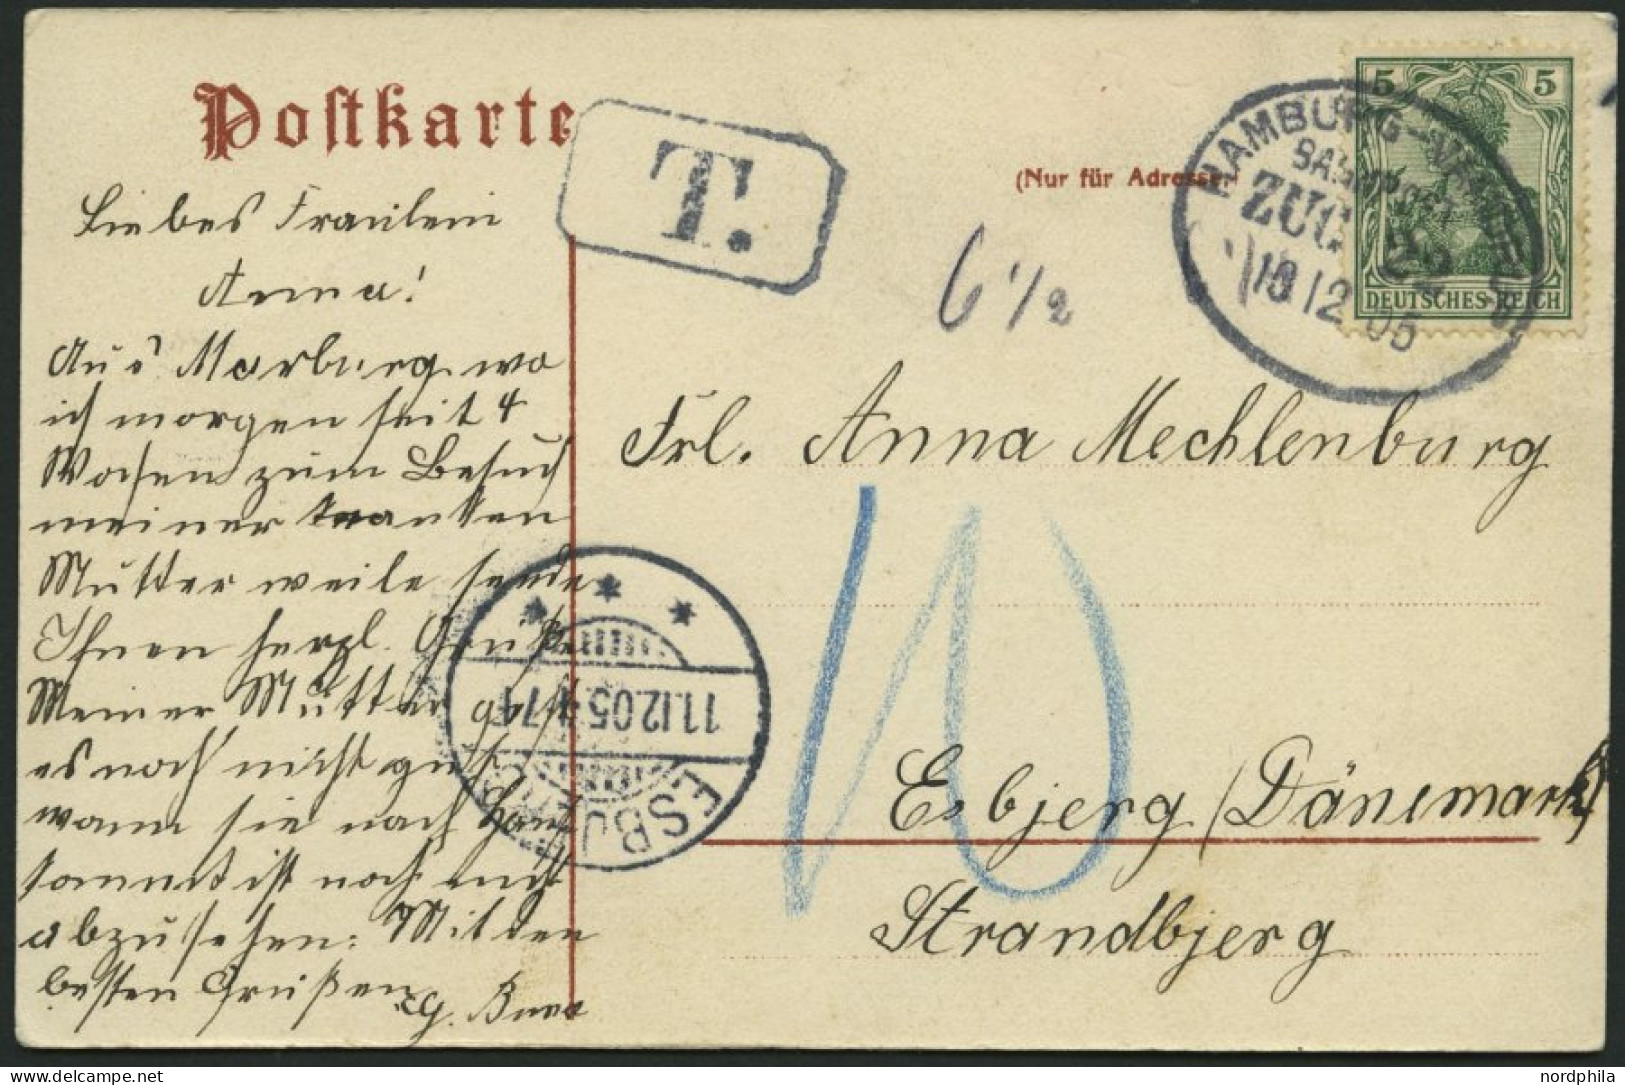 Postkarte
(Nur für Adresse.)
T.
5 5
DEUTSCHES REICH
HAMBURG
BAHNPOST
ZUG
10 12 05
6 1/2
Liebes Fräulein
Anna!
Aus Marburg wo
ich morgen seit 4
Wochen zum Besuch
meiner kranken
Mutter weile sende
Ihnen herzl. Grüße
Meiner Mutter geht
es noch nicht gut
wann sie nach Haus
kommt ist noch nicht
abzusehen. Mit den
besten Grüßen
Frl. Anna Mechlenburg
10
Esbjerg (Dänemark)
Strandbjerg
11.12.05
ESBJERG
nordphila